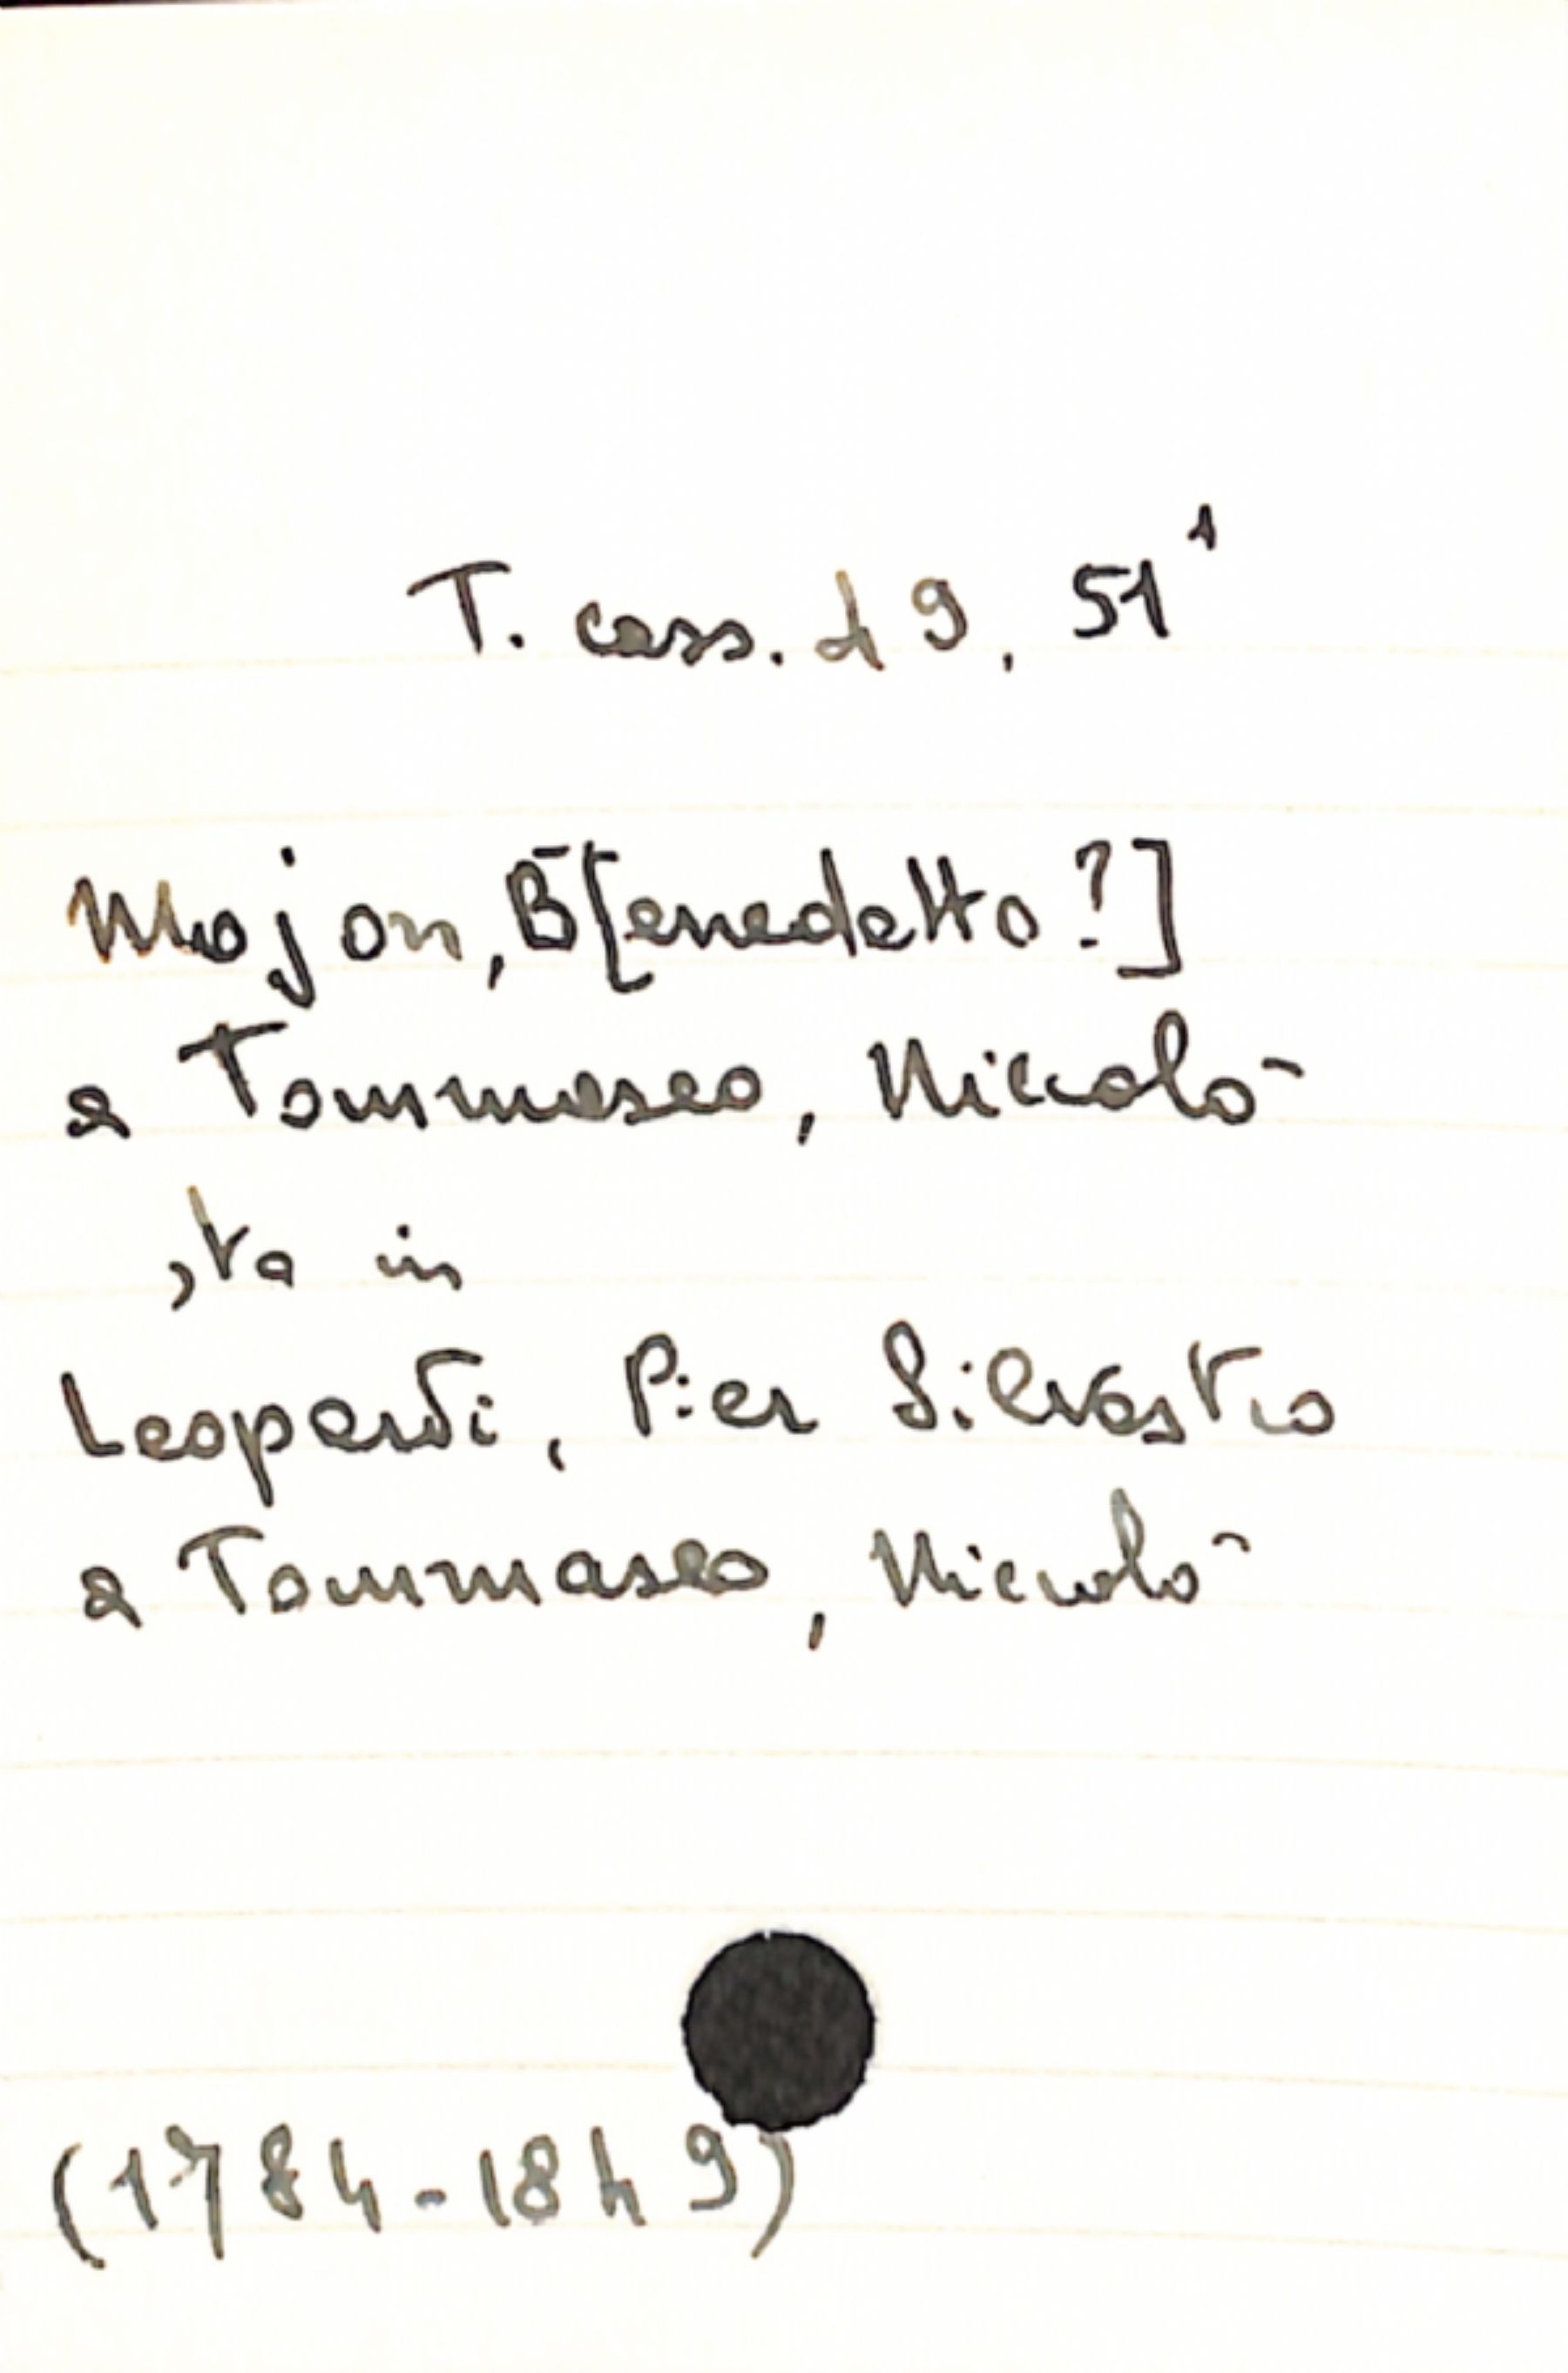 T. cass. 49, 51¹
Mojon, B[enedetto?]
a Tommaseo, Niccolò
sta in
Leopardi, Pier Silvestro
a Tommaseo, Niccolò
(1784-1849)